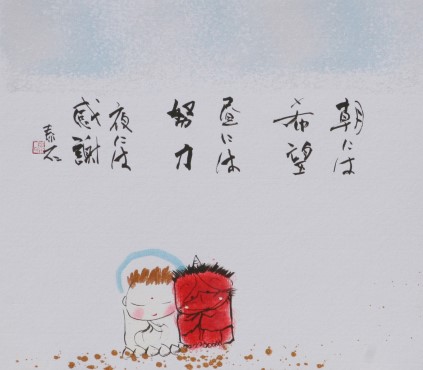 朝には
希望
昼には
努力
夜には
感謝